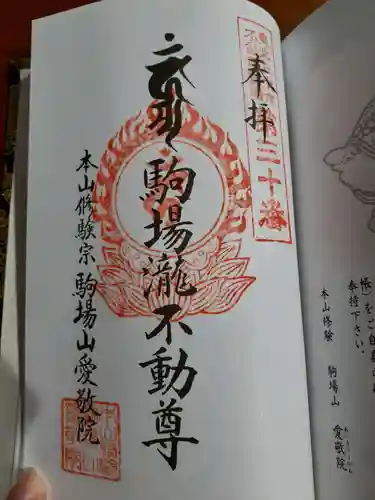 奉拝
第三十番
駒場瀧不動尊
本山修験宗 駒場山愛敬院
帳)をご自
奉持下さい。
本山修験 駒場山 愛敬院